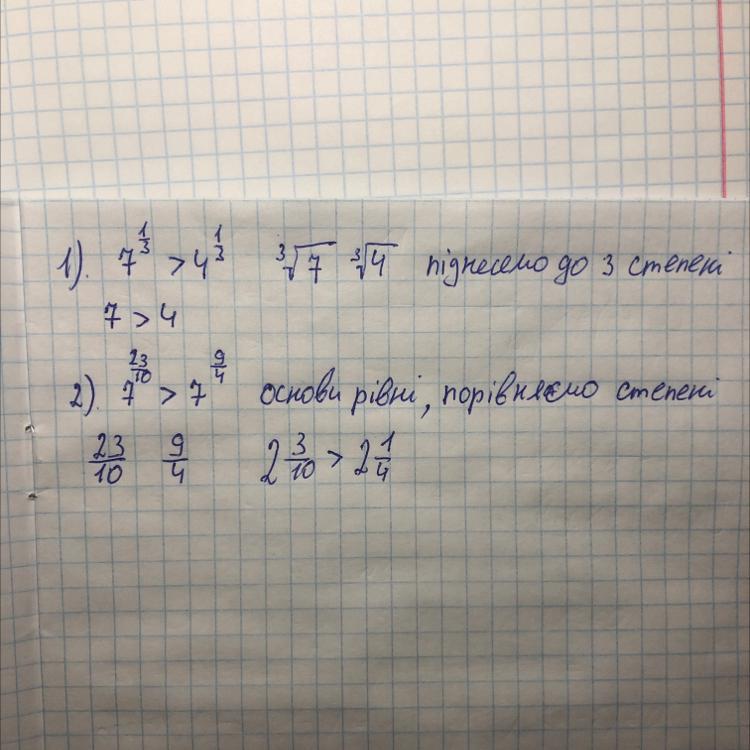 1). 7^{1/3} > 4^{1/3} ∛7 ∛4 піднесемо до 3 степені
7 > 4
2). 7^{23/10} > 7^{9/4} основи рівні, порівняємо степені
23/10 9/4 2 3/10 > 2 1/4